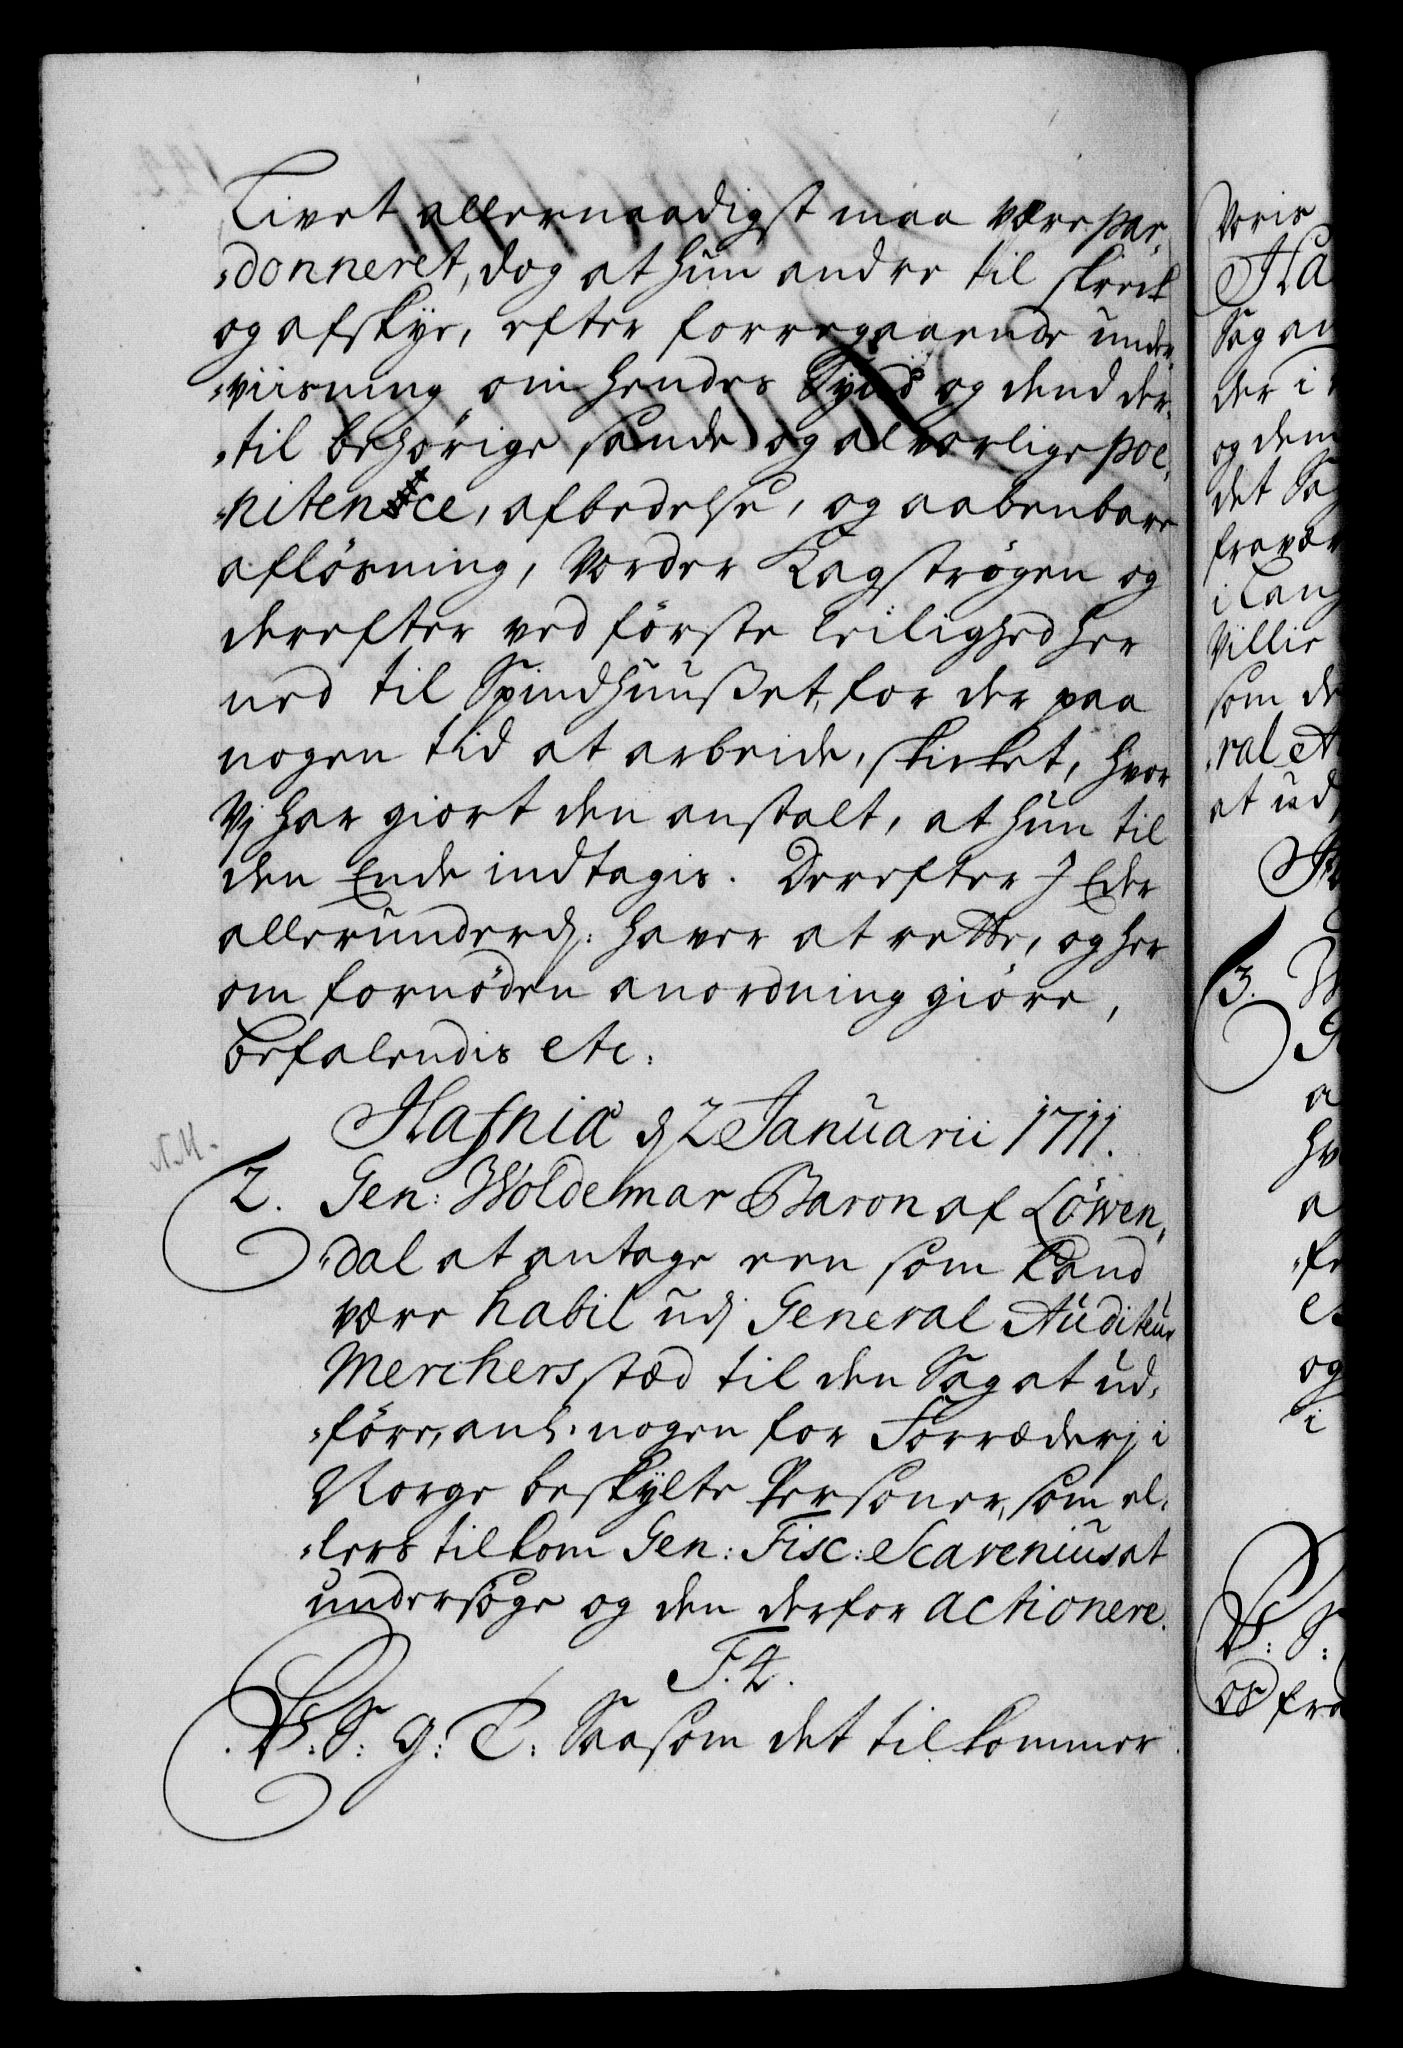 Livet allernaadigst maa være par-
=donneret, dog at hun andre til skreck
og afskye, efter foregaaende under
=viisning om hendes Synd og dend der-
=til behörige sande og alvorlige poe-
=nitence, afbedelse, og aabenbare
aflösning, vorder Kagströgen og
derefter ved förste leilighed her
ned til Spindhuuset, for der paa
nogen tid at arbeide, skicket, hvor
Vj har giort den anstalt, at hun til
den Ende indtagis. Derefter I Eder
allerunderd: haver at rette, og her
om fornöden anordning giöre,
Befalendis etc:
Hafniæ d 2 Januarii 1711.
N.M.
2. Gen: Woldemar Baron af Löwen-
=dal at antage een som kand
være habil udj General Auditeur
Merchers stæd til den Sag at ud-
=före, anl: nogen for Forræderj i
Norge beskylte Personer, som el-
=lers tilkom Gen: Fisc: Scavenius at
undersöge og den derfor actionere.
F. 4.
V. S. G: T: Saasom det tilkommer
Voris
Ha
Sag an
der i
og dem
det Sag
fravær
i Lang
Villie
som de
=ral A
at ud
3.
a
hv
a
=fe
og
i
V: S:
os fra